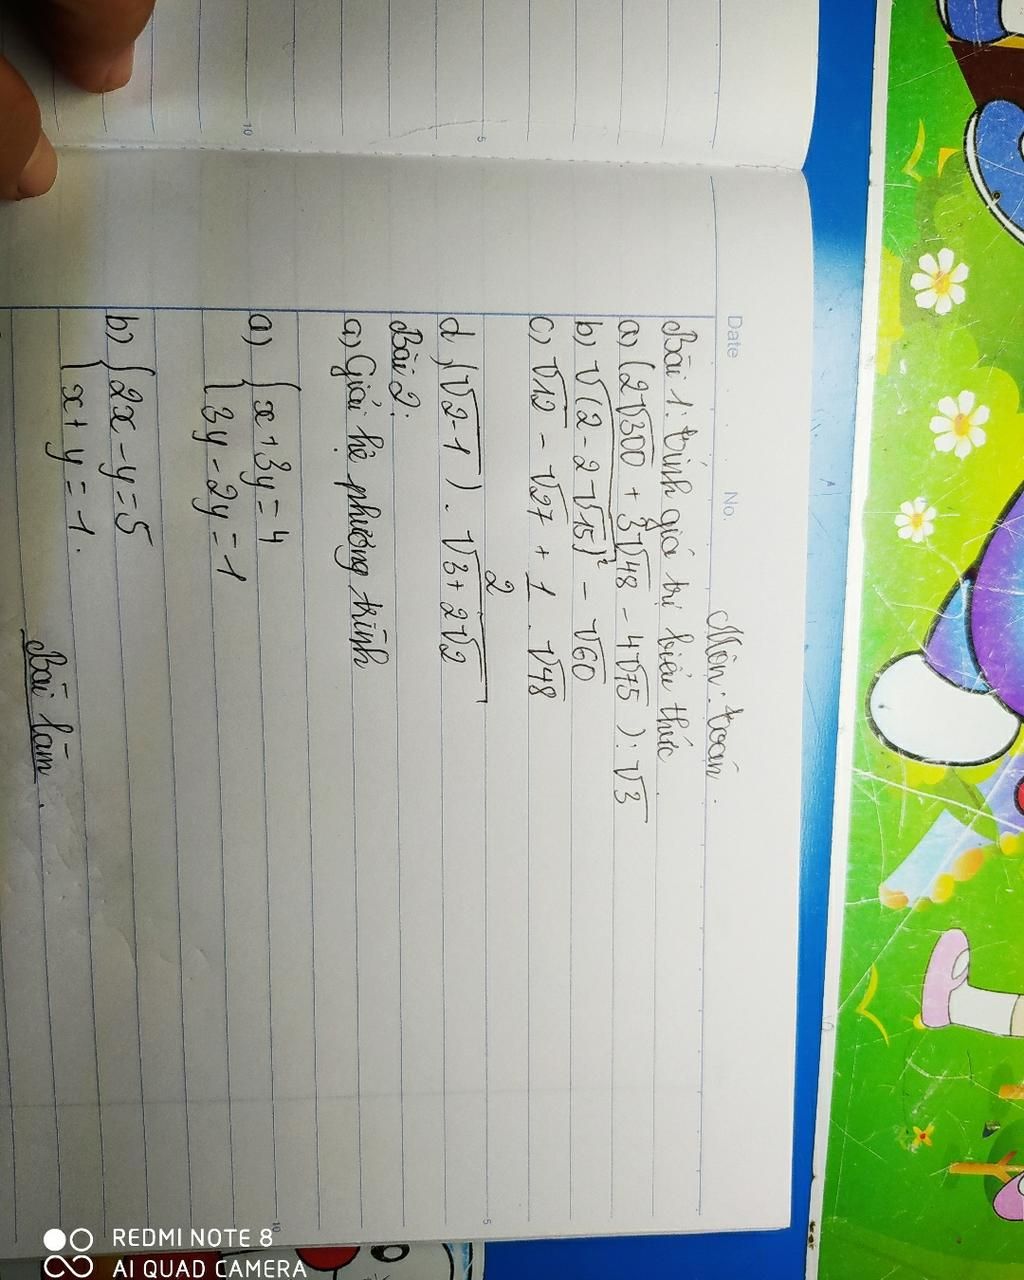 Date No.
Môn: toán.
Bài 1: tính giá trị biểu thức
a) (2√300 + 3√48 - 4√75) : √3
b) √(2 - 2√15)² - √60
c) √12 - √27 + 1/2 . √48
d) (√2-1) . √3+2√2
Bài 2:
a) Giải hệ phương trình
a) { x + 3y = 4
3y - 2y = -1
b) { 2x - y = 5
x + y = -1.
Bài làm.
5
10
5
10
REDMI NOTE 8
AI QUAD CAMERA